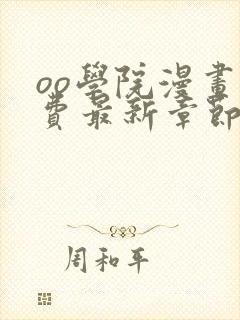 oo學院漫畫
費最新章節
周和平